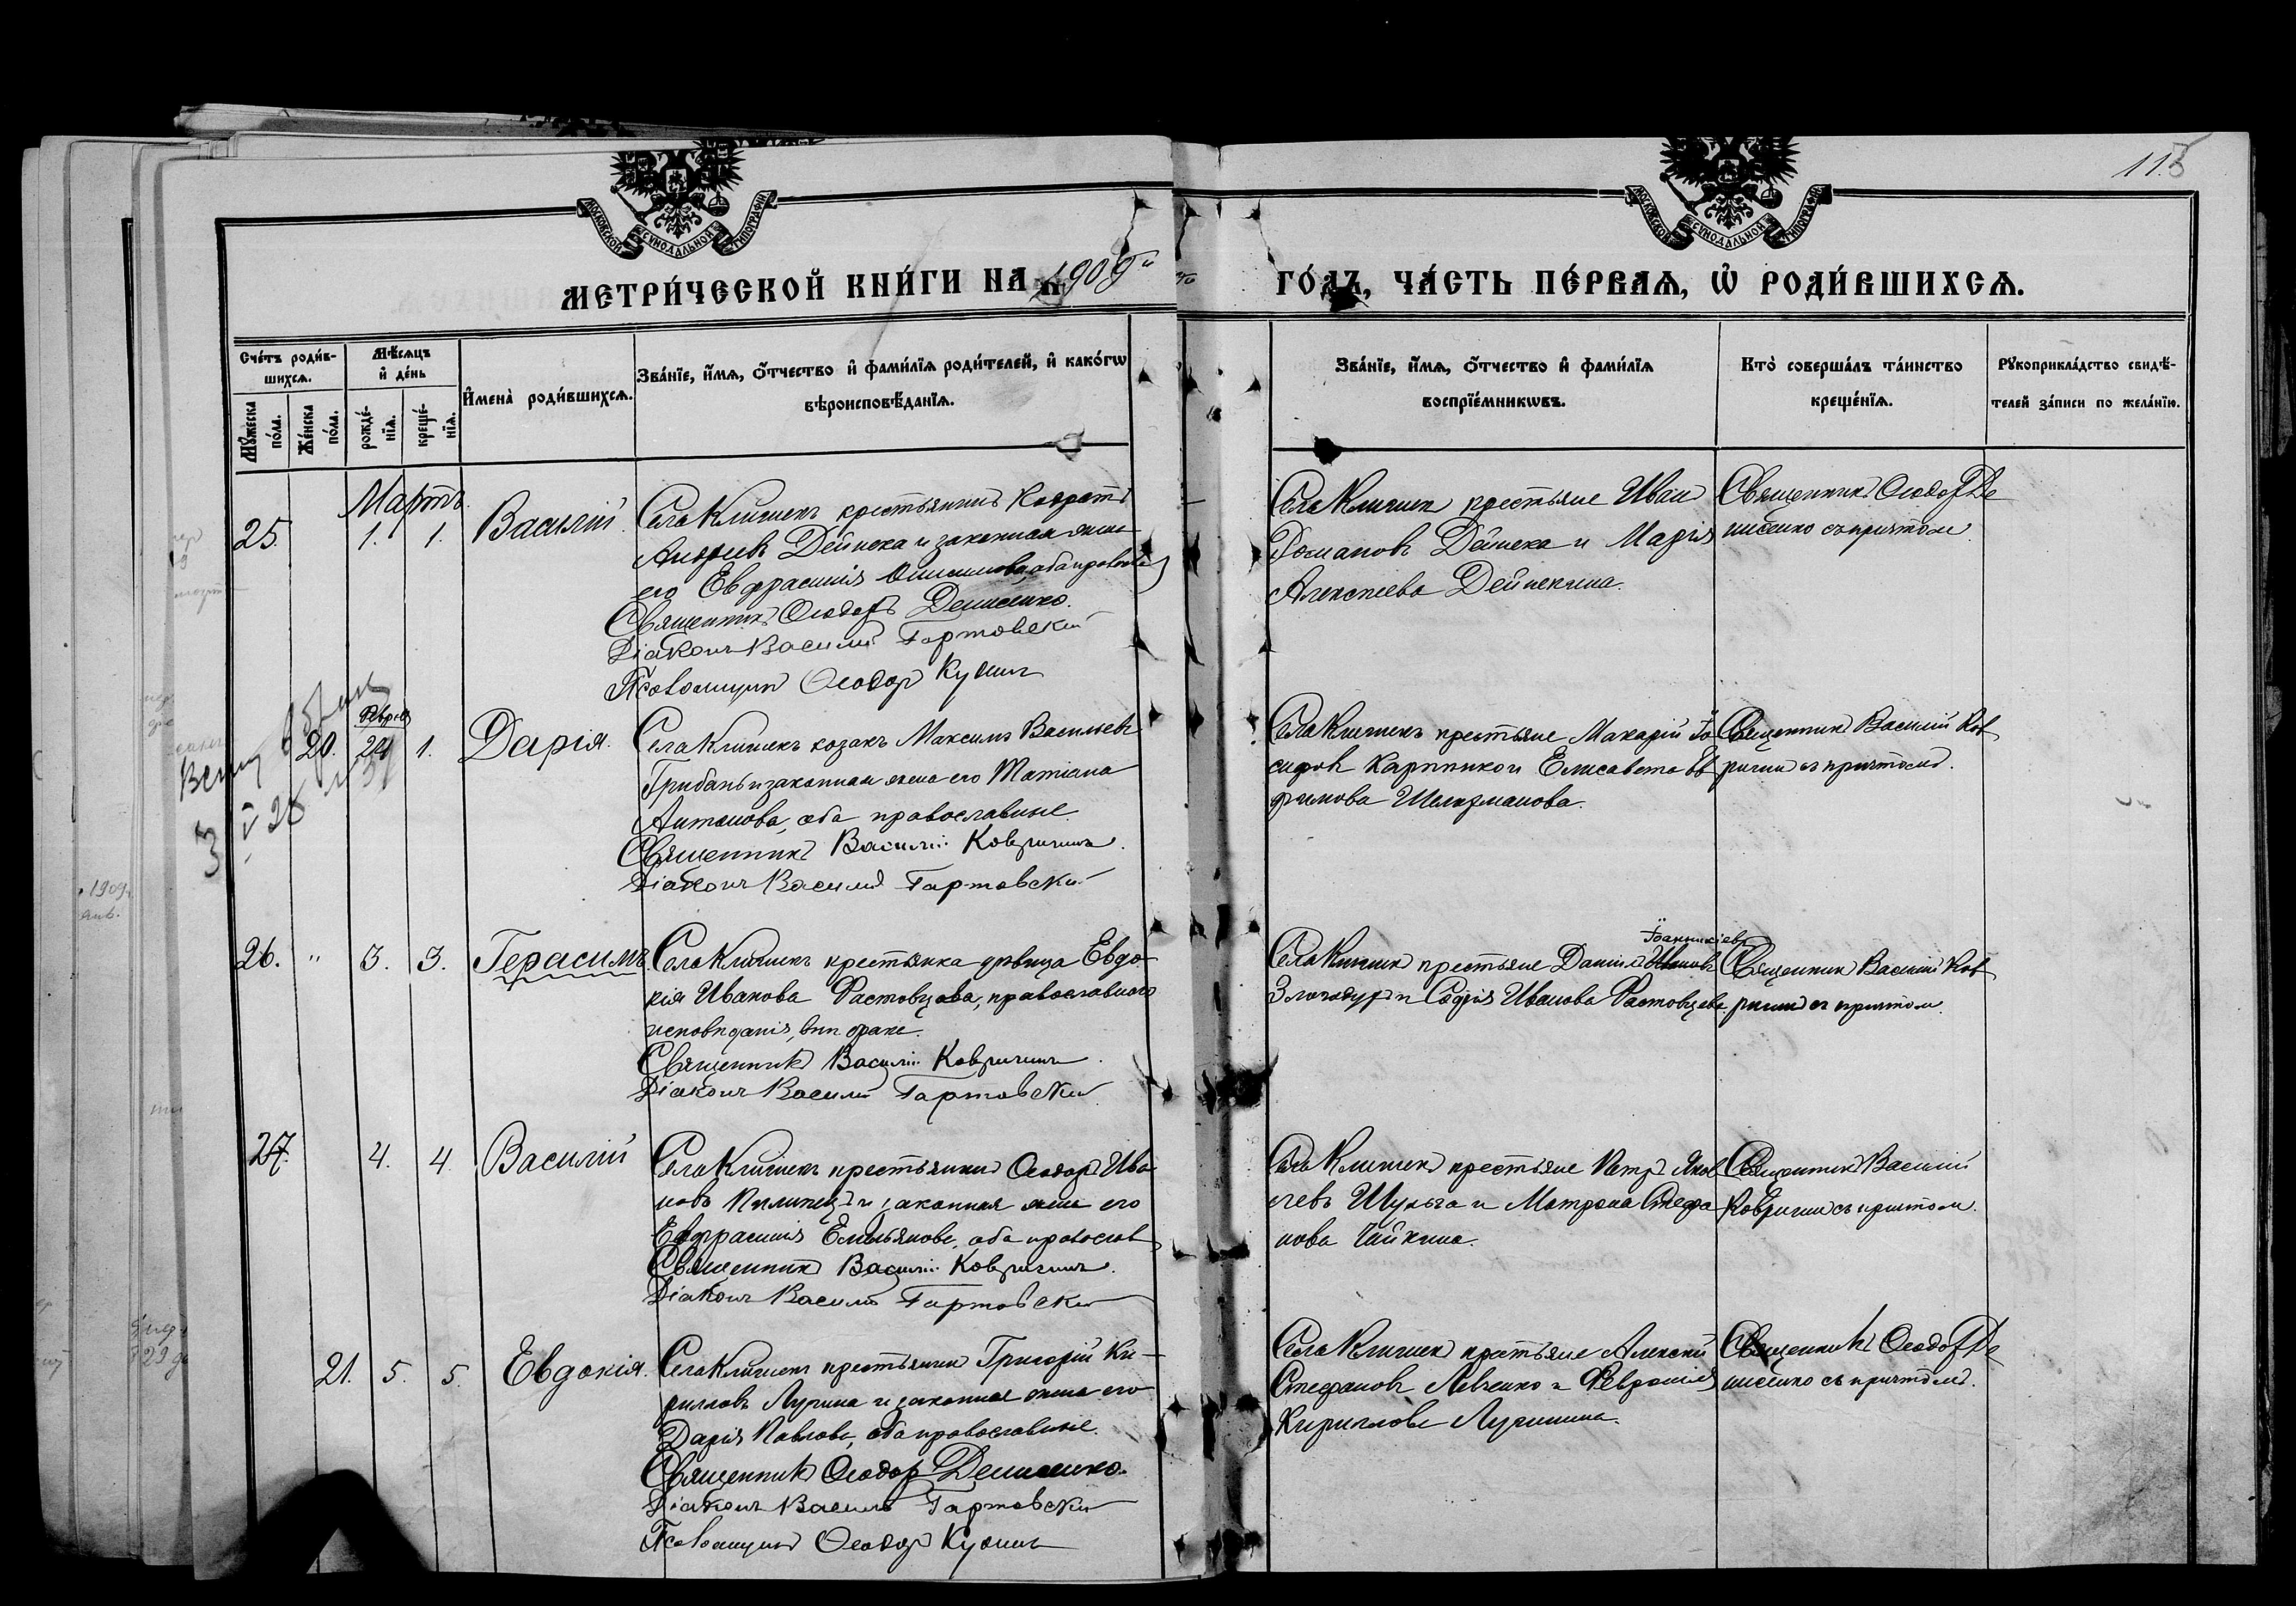 115
МОСКОВСКОЙ СѴНОДАЛЬНОЙ ТИПОГРАФІИ
МОСКОВСКОЙ СѴНОДАЛЬНОЙ ТИПОГРАФІИ
МЕТРИ́ЧЕСКОЙ КНИ́ГИ НА 1909й
ГО́ДЪ, ЧА́СТЬ ПЕ́РВАѦ, Ѡ҆ РОДИ́ВШИХСѦ.
Сче́тъ роди́в-
шихсѧ.
Мѣ́сѧцъ
и҆ де́нь
Мꙋ́жеска
по́ла.
Же́нска
по́ла.
рожде́-
нїѧ.
креще́-
нїѧ.
И҆мена̀ роди́вшихсѧ.
Зва́нїе, и҆́мѧ, ѻ҆́тчество и҆ фами́лїѧ роди́телей, и҆ како́гѡ
вѣроисповѣ́данїѧ.
Зва́нїе, и҆́мѧ, ѻ҆́тчество и҆ фами́лїѧ
воспрїе́мникѡвъ.
Кто̀ соверша́лъ та́инство
креще́нїѧ.
Рꙋкоприкла́дство свидѣ́-
телей за́писи по жела́нїю.
Мартъ
25. 1. 1. Василій
Села Клишекъ крестьянинъ Кондратъ
Андреевъ Дейнека и законная жена
его Евфрасинія Онисимова, оба православ
Священникъ Ѳеодоръ Денисенко.
Діаконъ Василій Гартовскій
Псаломщикъ Ѳеодоръ
Села Клишекъ крестьяне Иванъ
Романовъ Дейнека и Марія
Алексѣева Дейнекина.
Священникъ Ѳеодоръ Де
нисенко съ причтомъ.
Февраля
20. 24 1. Дарія.
Села Клишекъ козакъ Максимъ Васильевъ
Грибанъ и законная жена его Татіана
Антонова, оба православные.
Священникъ Василій Ковригинъ.
Діаконъ Василій Гартовскій
Села Клишекъ крестьяне Макарій Іо
сифовъ и Елисавета Ев
фимова
Священникъ Василій Ков
ригинъ съ причтомъ.
26. " 3. 3. Герасимъ.
Села Клишекъ крестьянка дѣвица Евдо
кія Иванова Растовцева, православнаго
исповѣданія, внѣ брака.
Священникъ Василій Ковригинъ.
Діаконъ Василій Гартовскій
Іоанникіевъ
Села Клишекъ крестьяне Даніилъ Ивановъ
и Софія Иванова Растовцева.
Священникъ Василій Ков
ригинъ съ причтомъ.
27. 4. 4. Василій
Села Клишекъ крестьянинъ Ѳеодоръ Ива
новъ Пилипецъ и законная жена его
Евфрасинія Емельянова, оба православ
Священникъ Василій Ковригинъ.
Діаконъ Василій Гартовскій
Села Клишекъ крестьяне Петръ Яков
левъ Шульга и Матрона Стефа
нова Чайкина.
Священникъ Василій
Ковригинъ съ причтомъ.
21. 5. 5. Евдокія.
Села Клишекъ крестьянинъ Григорій Ки-
рилловъ Лузина и законная жена его
Дарія Павлова, оба православные.
Священникъ Ѳеодоръ Денисенко.
Діаконъ Василій Гартовскій
Псаломщикъ Ѳеодоръ
Села Клишекъ крестьяне Алексій
Стефановъ Левченко и Февронія
Кириллова
Священникъ Ѳеодоръ Де
нисенко съ причтомъ.